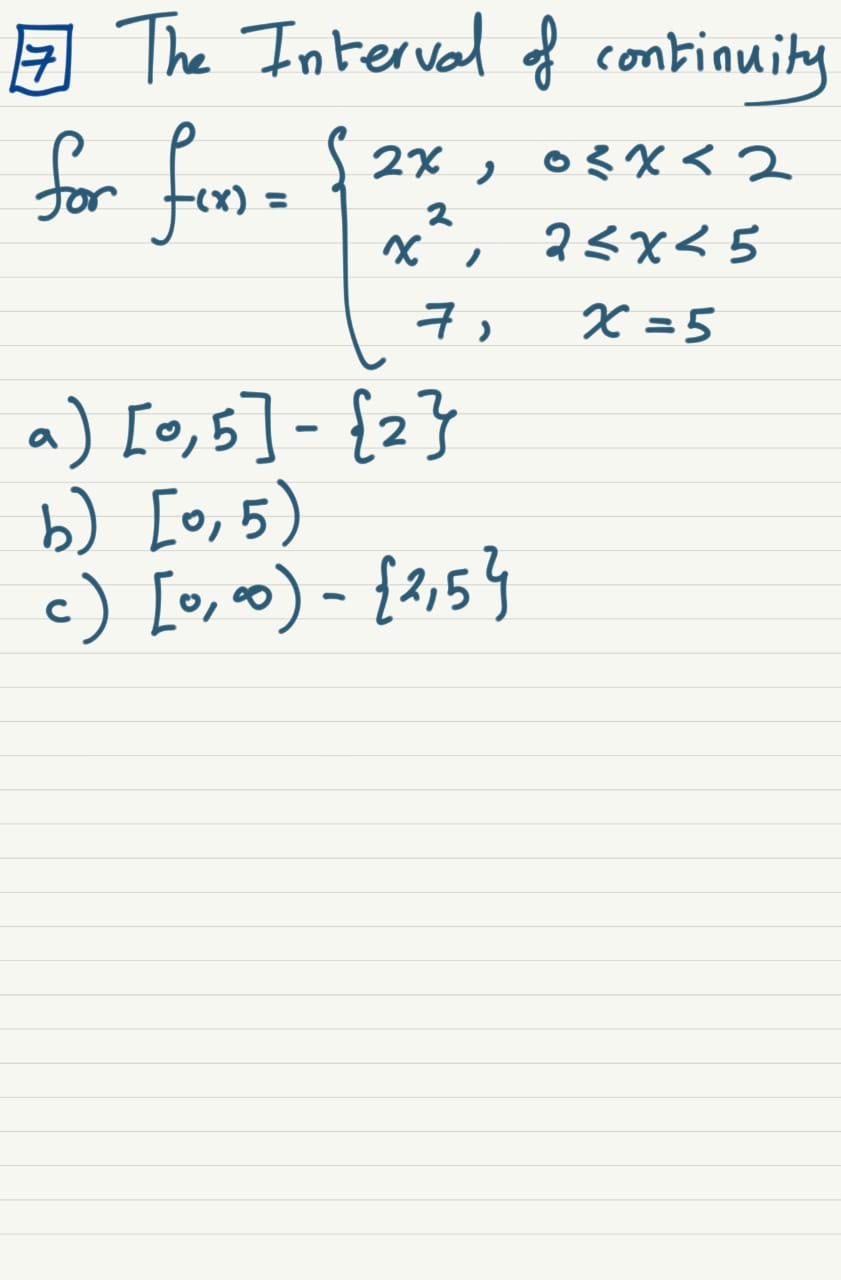 7 The Interval of continuity
for f(x) = { 2x , 0 ≤ x < 2
x², 2 ≤ x < 5
7, x = 5
a) [0, 5] - {2}
b) [0, 5)
c) [0, ∞) - {2,5}